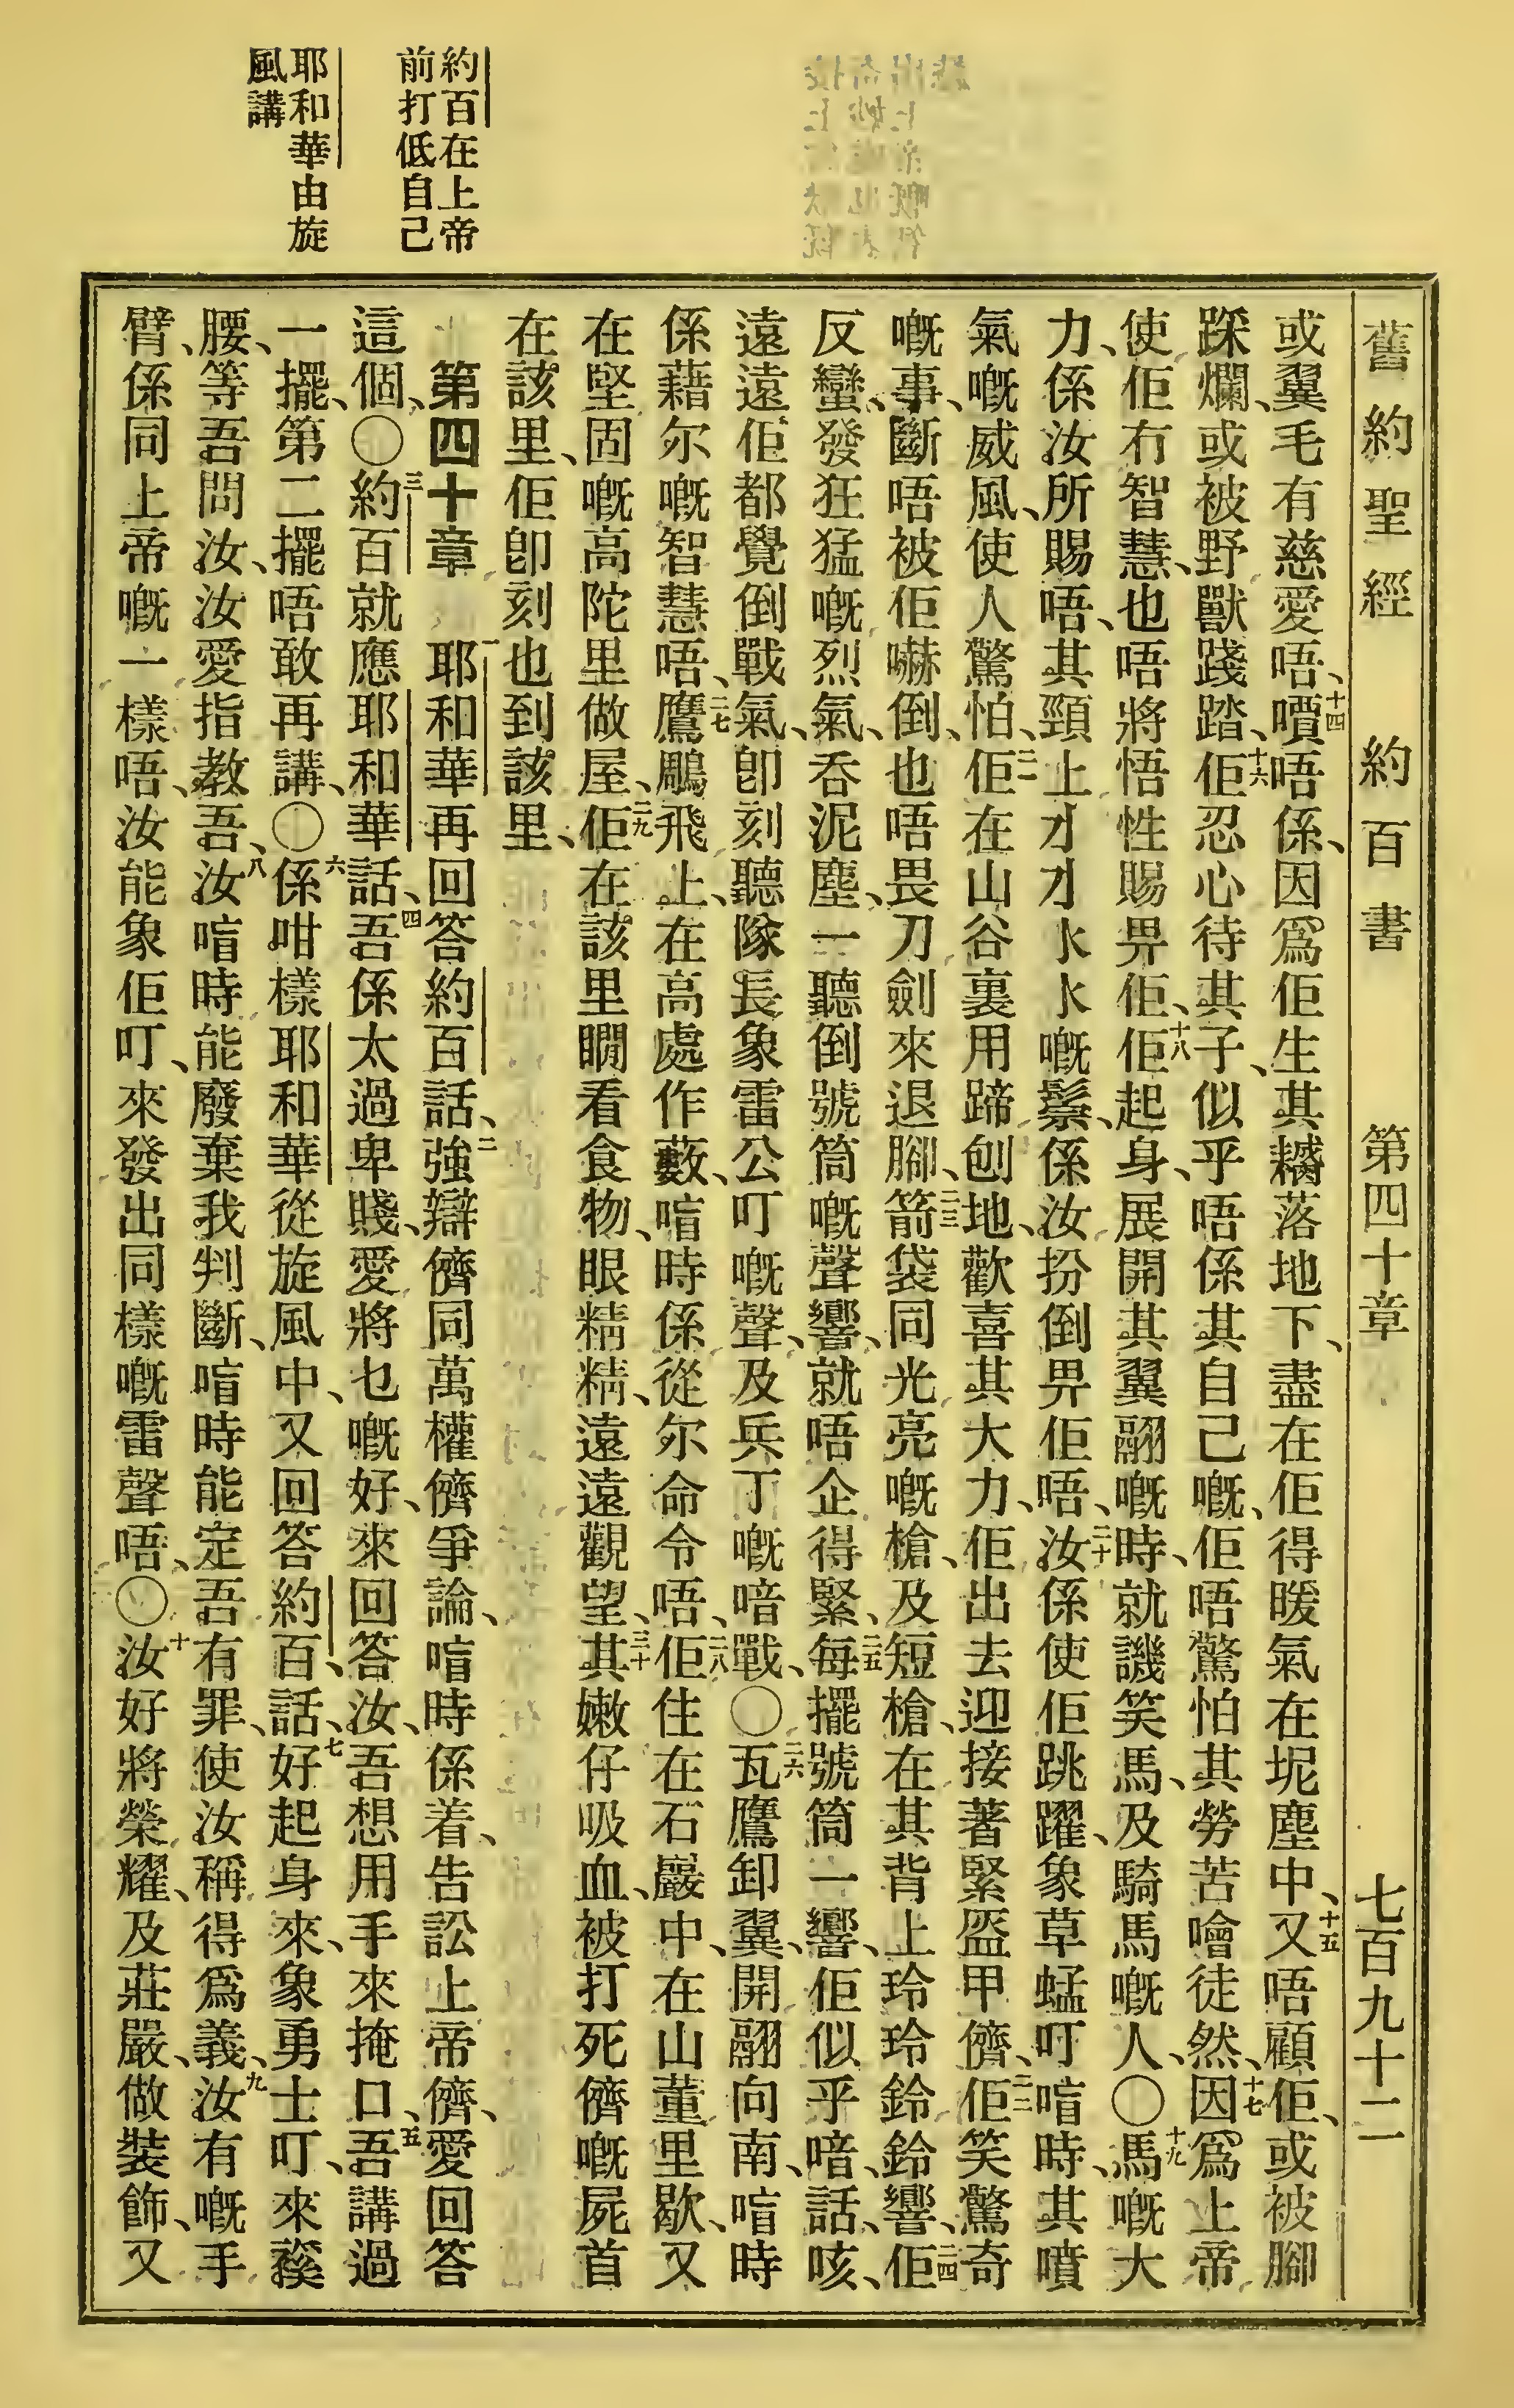 舊約聖經 約百書 第四十章 七百九十二
約百在上帝
前打低自己
耶和華由旋
風講
或翼毛有慈愛唔、十四嘪唔係、因爲佢生其䊧落地下、盡在佢得暖氣在坭塵中、十五又唔顧佢、或被腳
踩爛、或被野獸踐踏、十六佢忍心待其子、似乎唔係其自己嘅、佢唔驚怕其勞苦噲徒然、十七因爲上帝
使佢冇智慧、也唔將悟性賜畀佢、十八佢起身、展開其翼翮嘅時、就譏笑馬、及騎馬嘅人、〇十九馬嘅大
力、係汝所賜唔、其頸上水水嘅鬃、係汝扮倒畀佢唔、二十汝係使佢跳躍、象草蜢叮、喑時、其噴
氣嘅威風、使人驚怕、二一佢在山谷裏用蹄刨地、歡喜其大力、佢出去迎接著緊盔甲儕、二二佢笑驚奇
嘅事、斷唔被佢嚇倒、也唔畏刀劍來退腳、二三箭袋同光亮嘅槍、及短槍、在其背上玲玲鈴鈴響、二四佢
反蠻、發狂猛嘅烈氣、吞泥塵、一聽倒號筒嘅聲響、就唔企得緊、二五每擺號筒一響、佢似乎喑話、咳、
遠遠佢都覺倒戰氣、卽刻聽隊長象雷公叮嘅聲、及兵丁嘅喑戰、〇二六瓦鷹卸翼、開翮向南、喑時
係藉尔嘅智慧唔、二七鷹鵰飛上、在高處作藪、喑時係從尔命令唔、二八佢住在石巖中、在山董里歇、又
在堅固嘅高陀里做屋、二九佢在該里瞷看食物、眼精精、遠遠觀望、三十其嫩仔吸血、被打死儕嘅屍首
在該里、佢卽刻也到該里、
第四十章 一耶和華再回答約百話、二強辯儕同萬權儕爭論、喑時係着、告訟上帝儕、愛回答
這個、〇三約百就應耶和華話、四吾係太過卑賤、愛將乜嘅好、來回答汝、吾想用手來掩口、五吾講過
一擺、第二擺唔敢再講、〇六係咁樣耶和華從旋風中、又回答約百、話、七好起身來、象勇士叮、來䙎
腰、等吾問汝、汝愛指教吾、八汝喑時能廢棄我判斷、喑時能定吾有罪、使汝稱得爲義、九汝有嘅手
臂、係同上帝嘅一樣唔、汝能象佢叮、來發出同樣嘅雷聲唔、〇十汝好將榮耀、及莊嚴、做裝飾、又